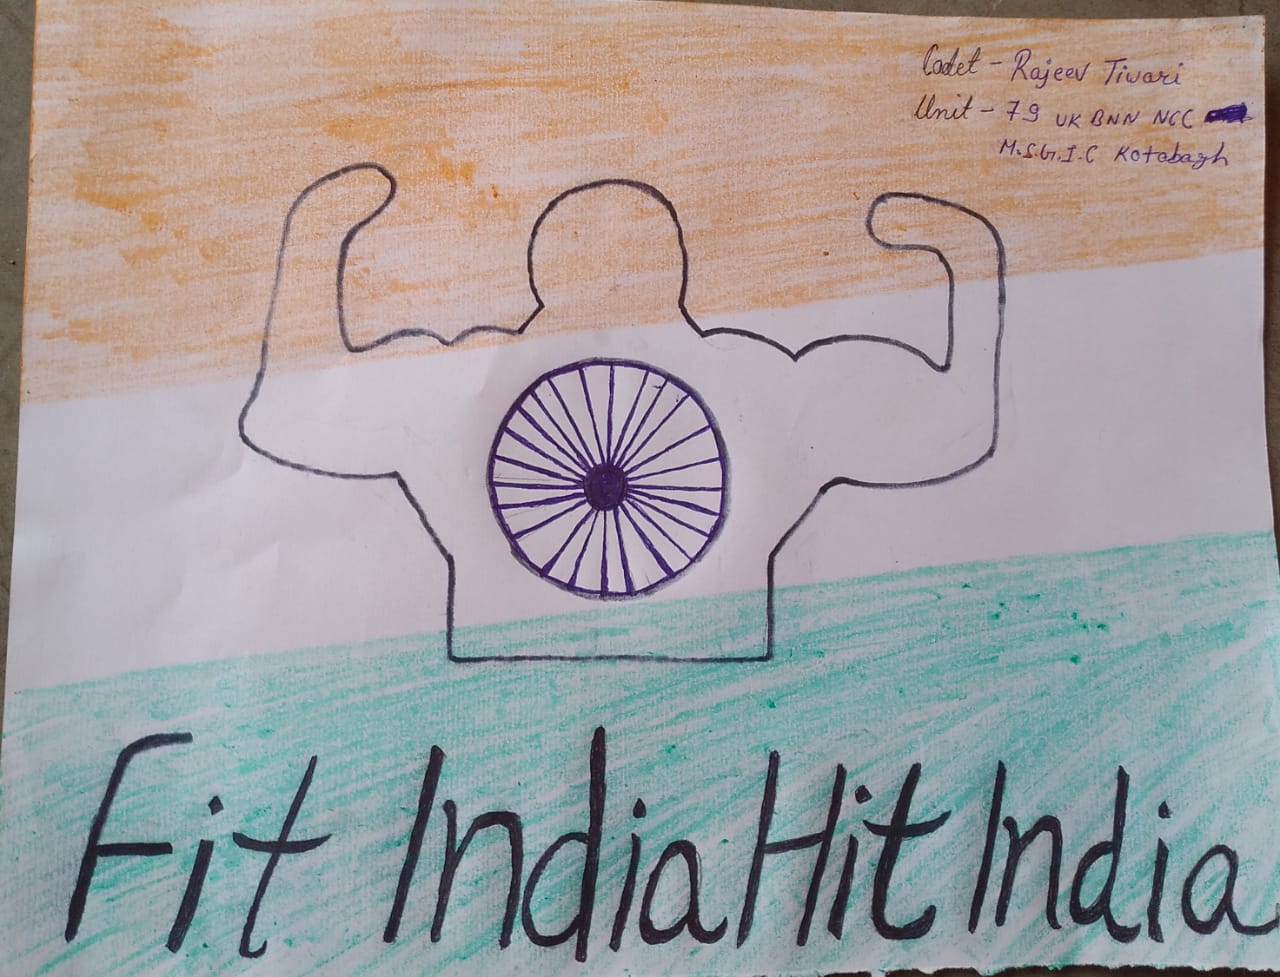 Cadet - Rajeev Tiwari
Unit - 79 UK BNN NCC
M.S.G.I.C Kotabagh
Fit India Hit India